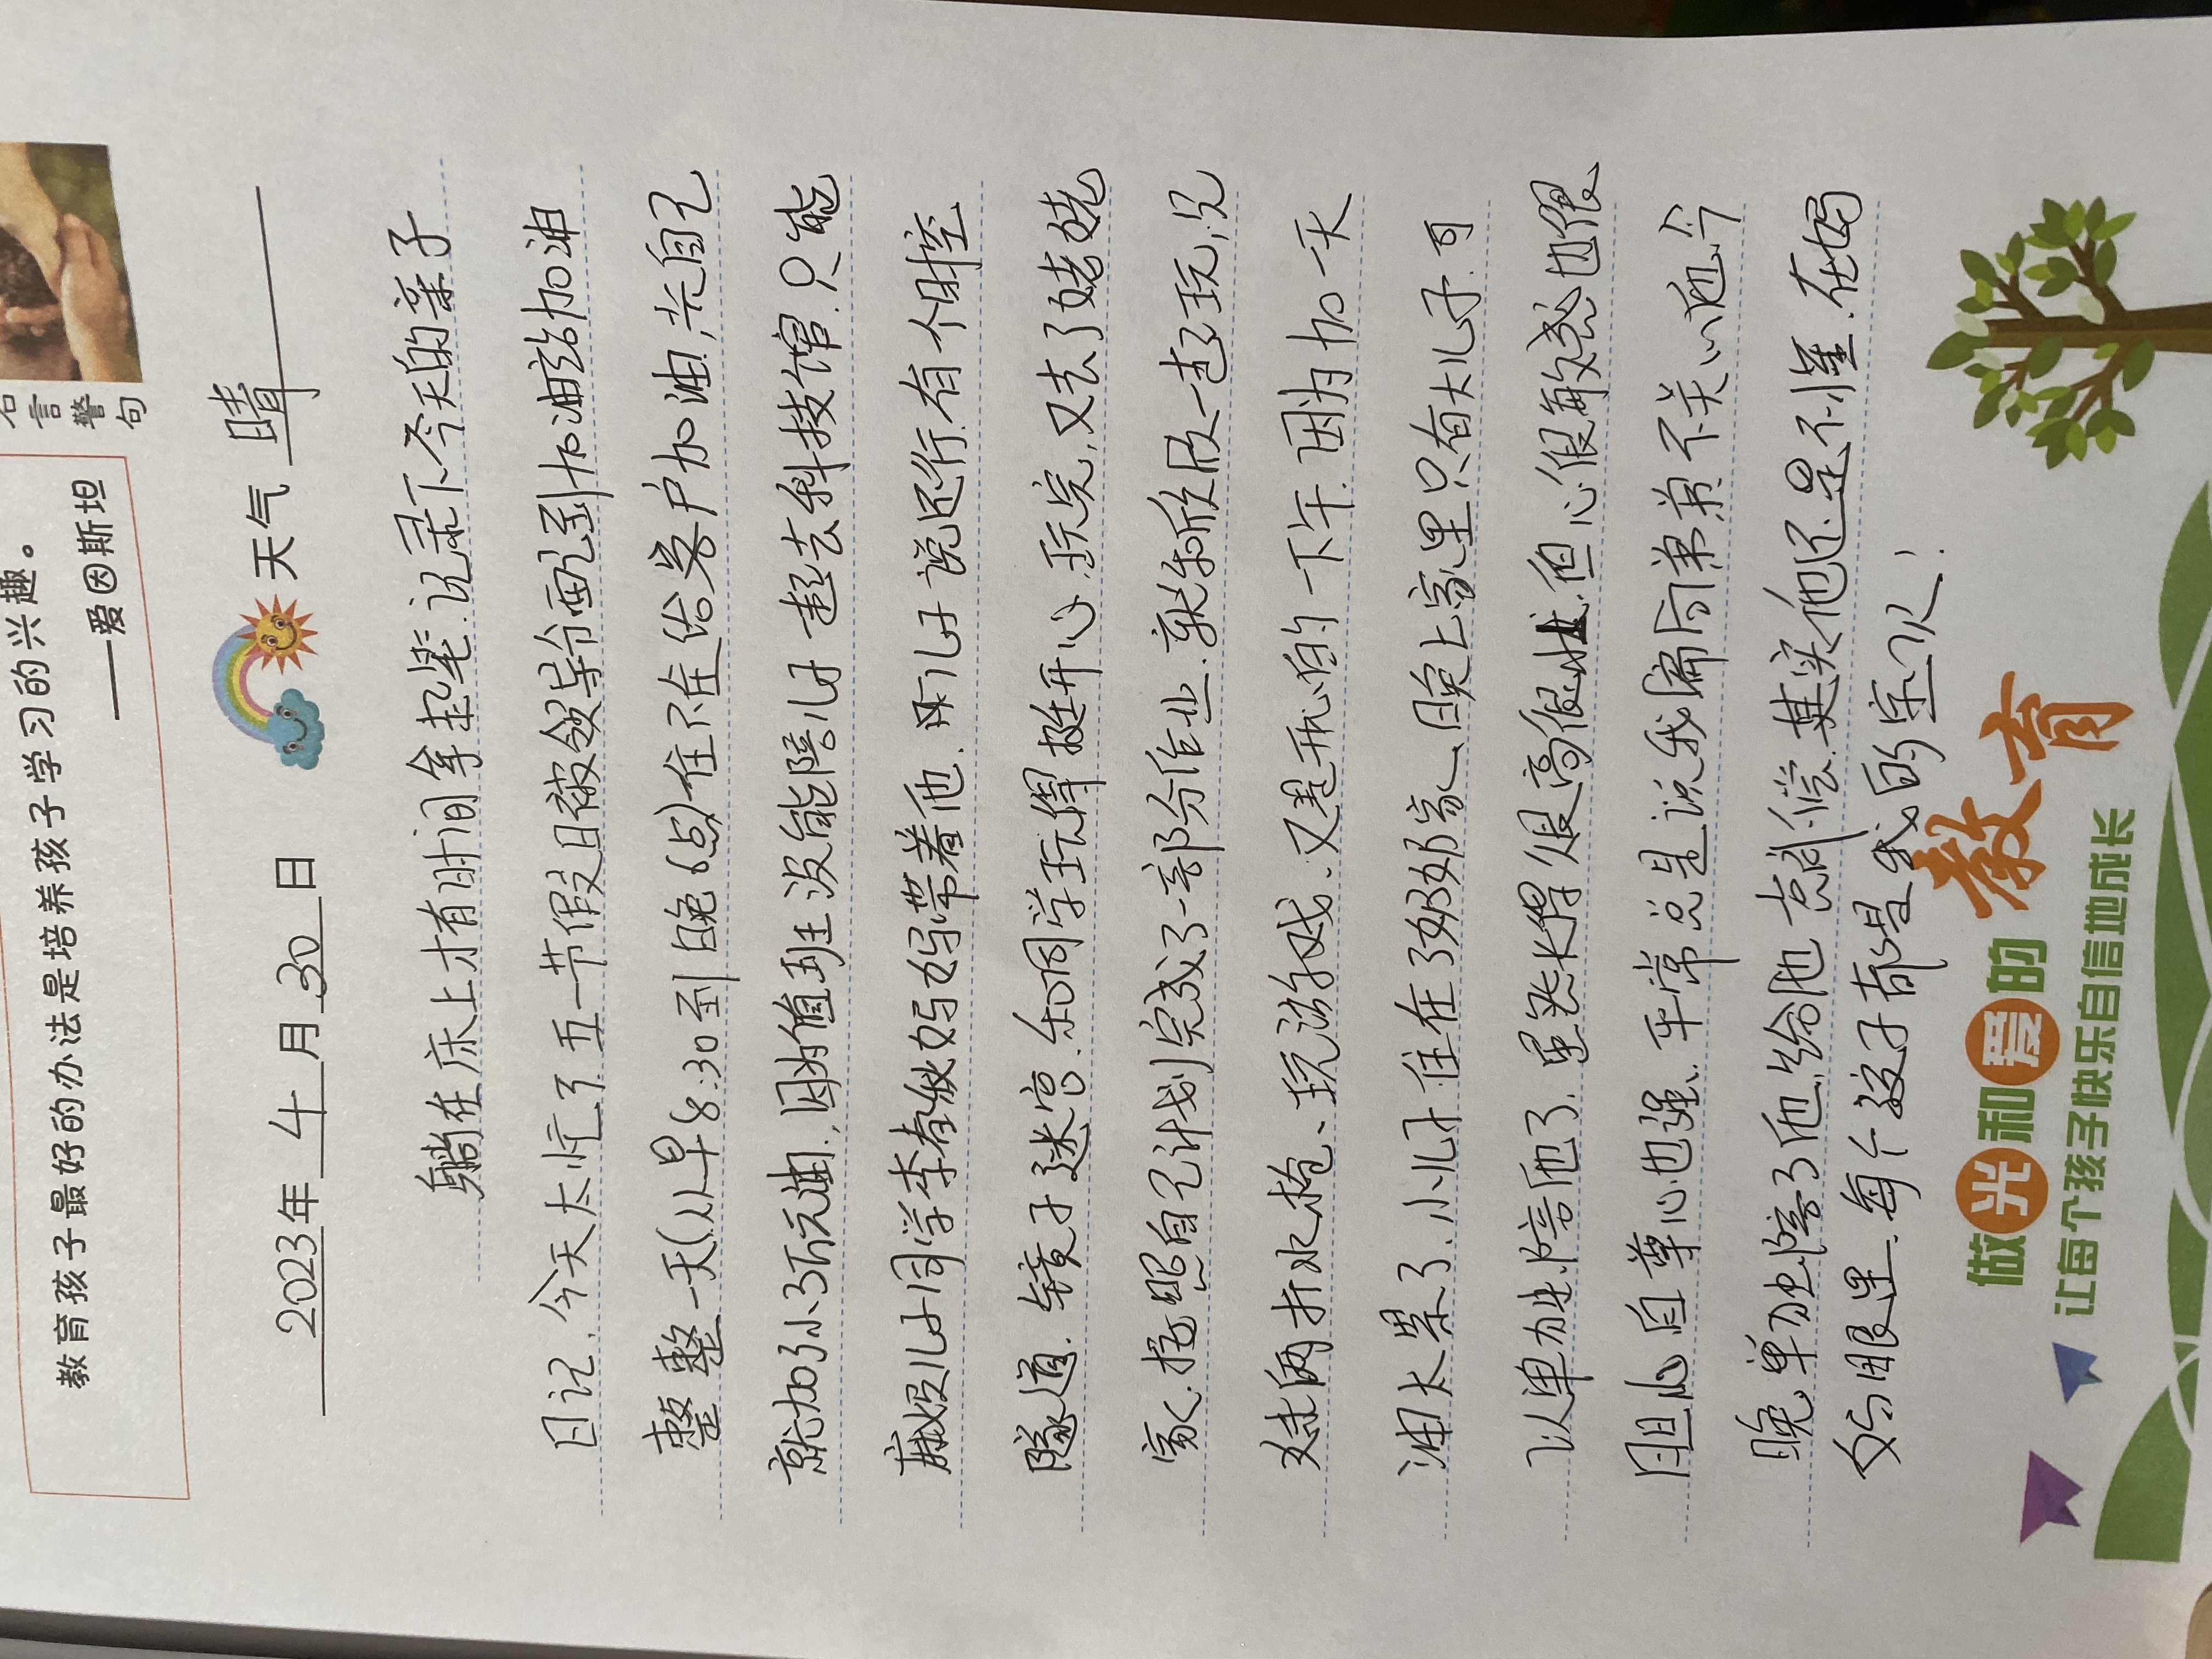 名言警句
教育孩子最好的办法是培养孩子学习的兴趣。
——爱因斯坦
2023年 4 月 30 日 天气 晴
躺在床上才有时间拿起笔.记录下今天的亲子
日记.今天太忙了.五一节假日被领导分配到加油站加油
整整一天(从早8:30到晚6点)住不住给客户加油,光自己
就加了小3万元油.,因为值班没能陪儿子一起去科技馆.只能
麻烦儿子同学李春秋妈妈带着他.听儿子说还行.有个时空
隧道.镜子迷宫.和同学玩得挺开心.玩完,又去了姥姥
家.按照自己计划完成了一部分作业.就和欣欣一起玩,兄
妹俩打水枪、玩游戏.又是开心的一下午.因为加一天
油太累了.小儿子住在了奶奶家、晚上家里只有大儿子.可
以单独陪他了.虽然长得很高很壮.但心很敏感也很
胆小.自尊心也强.平常总是说我偏向弟弟不关心他.今
晚单独陪了他.给他点补偿.其实他还是不懂.在妈
妈眼里.每个孩子都是我的宝贝!
做光和爱的教育
让每个孩子快乐自信地成长